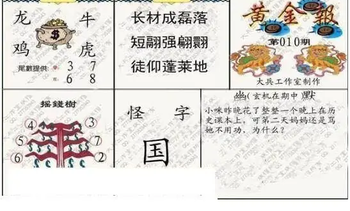 龙 牛
$
鸡 虎
尾數提供:3 7
6 8
长材成磊落
短翮强翩翾
徒仰蓬莱地
黄金報
第010期
大兵工作室制作
摇錢樹
④
②
⑦
①
③
⑥
怪 字
国
(玄机在期中
小咪昨晚花了整整一个晚上在历
史课本上，可第二天妈妈还是骂
她不用功，为什么?